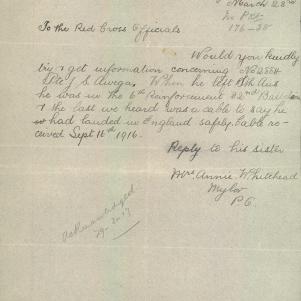 March 23rd
176-38
To the Red Cross Officials
Would you kindly
try & get information concerning No 2884
S. Auega, When he left Sth Aus
he was in the 6th Reinforcement 32nd
& the last we heard was a cable to say he
had landed in England safely. Cable re-
ceived Sept 16th 1916.
Reply to his sister
Mrs Annie Whitehead
Mylor
P.O.
Acknowledged
29-3-17